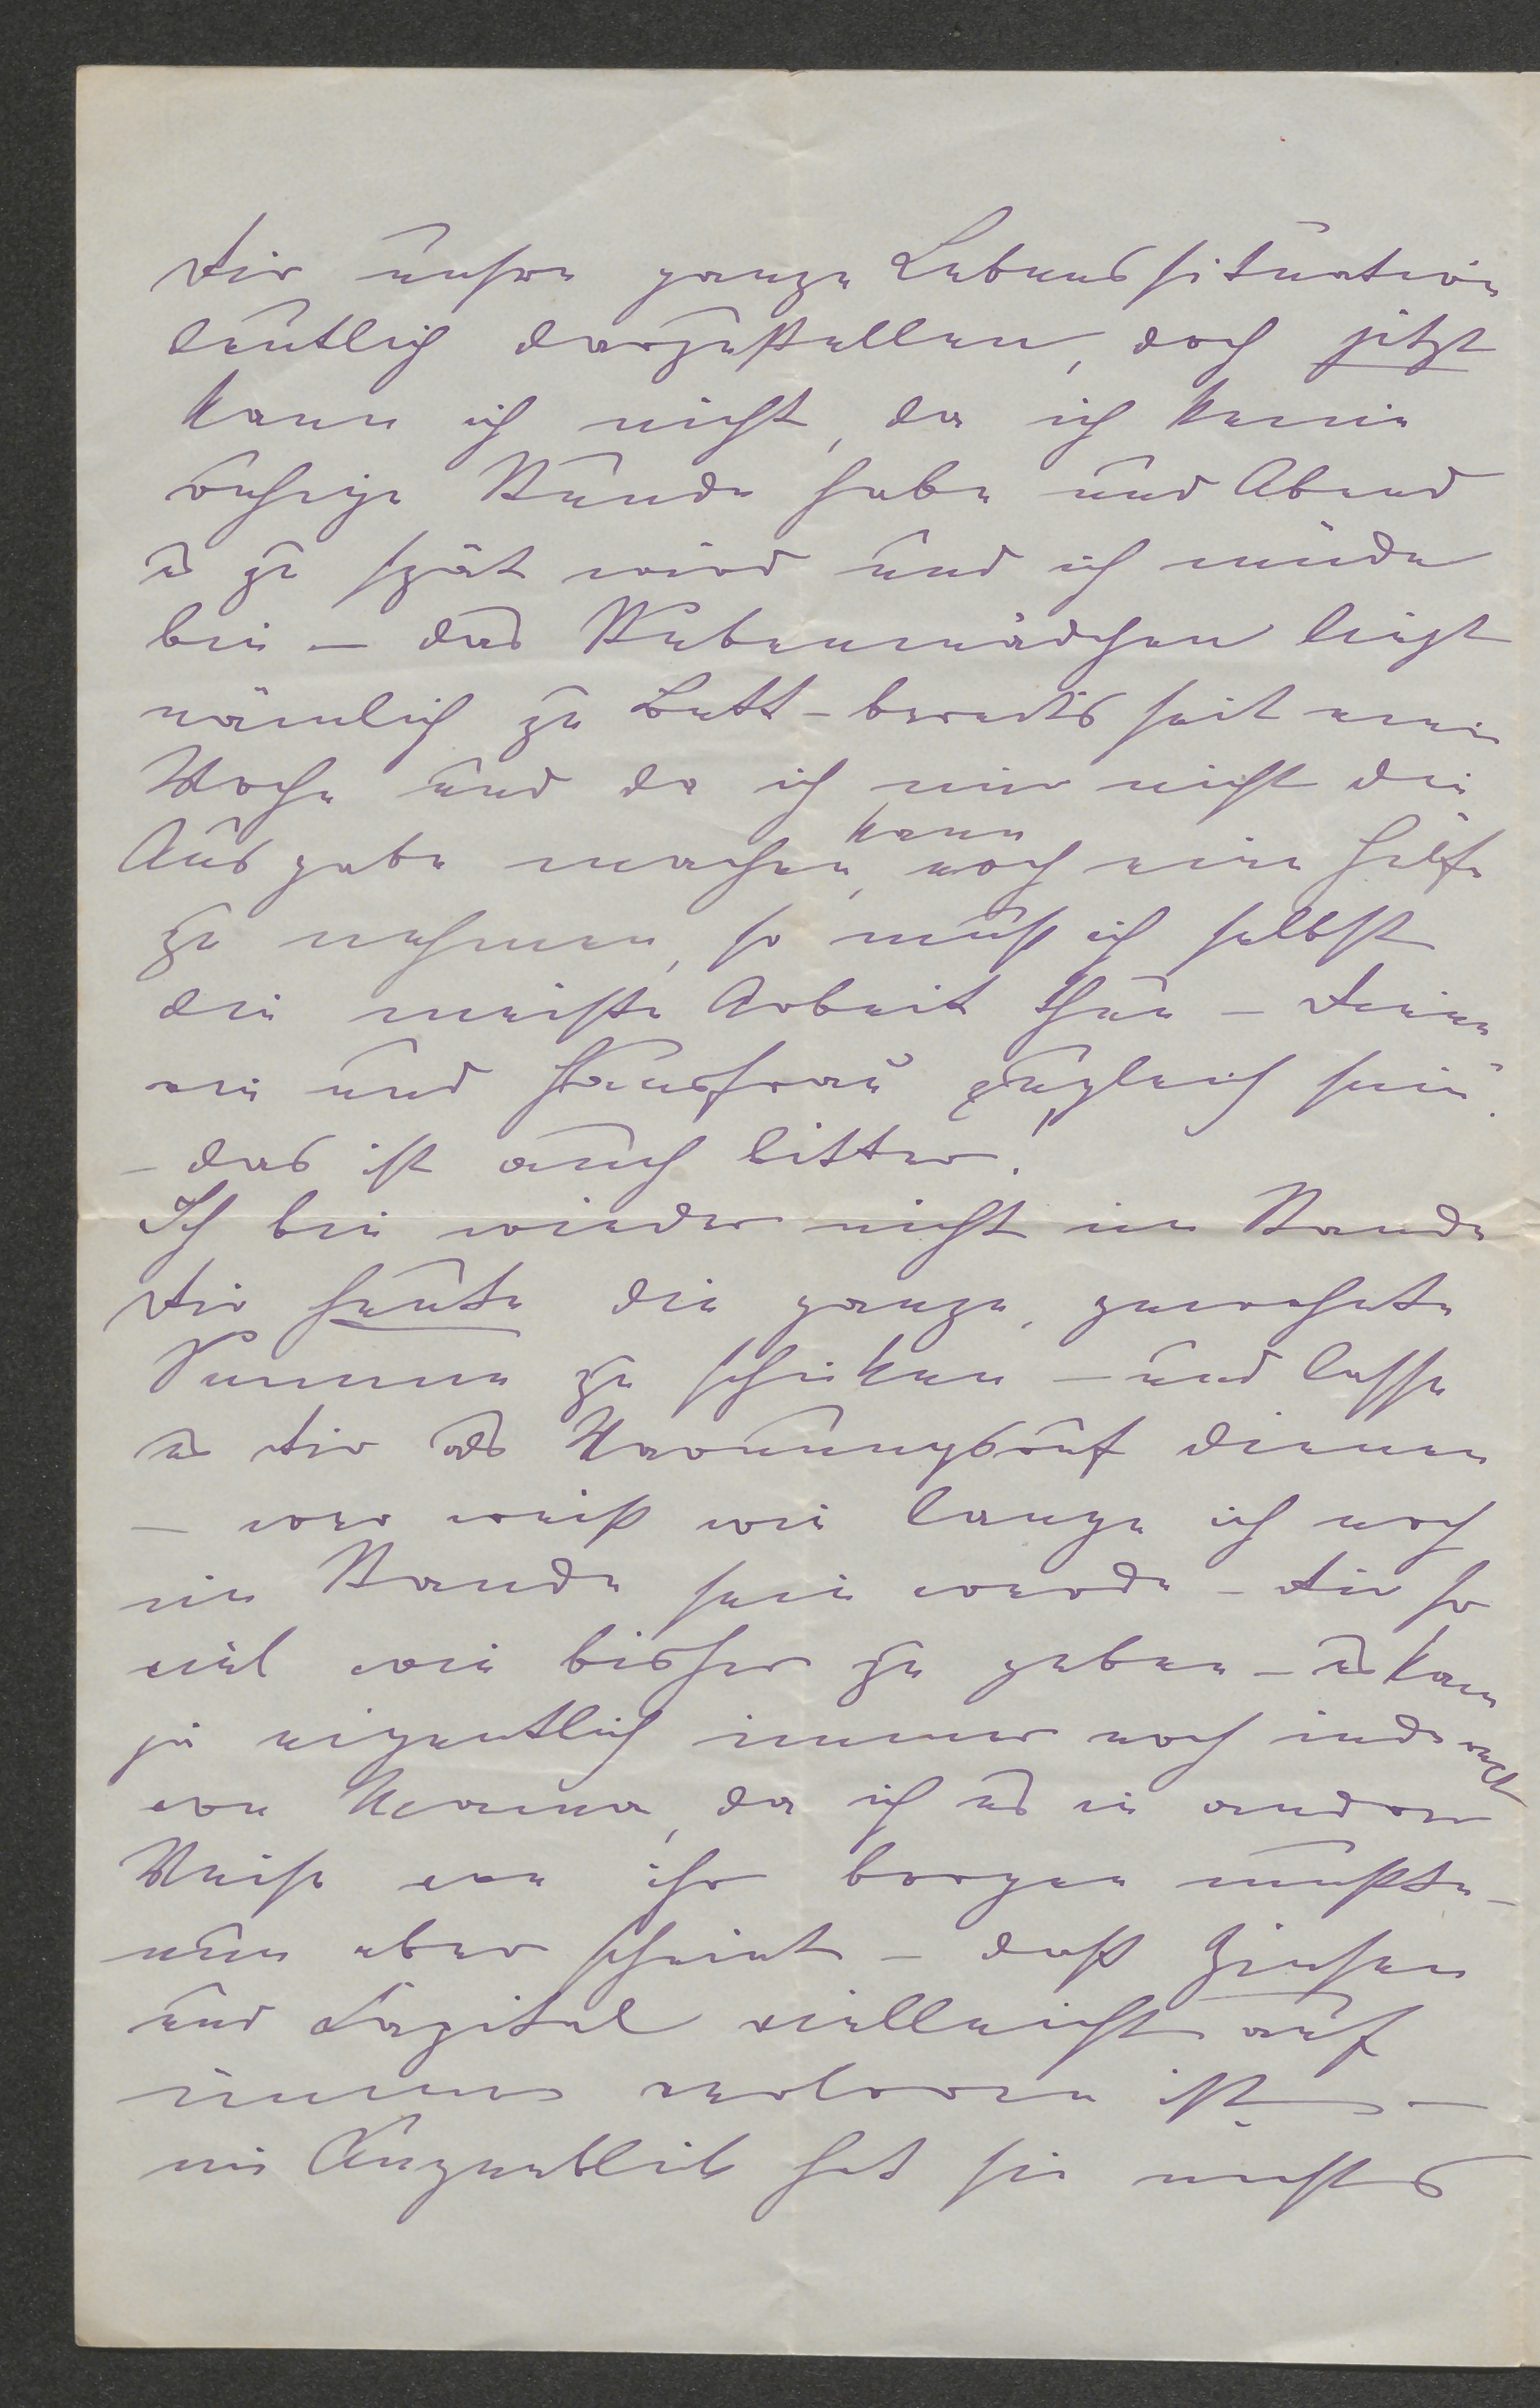 Dir unsre ganze Lebenssituation
deutlich darzustellen, doch jetzt
kann ich nicht, da ich keine
ruhige Stunde habe und Abend
es zu spät wird und ich müde
bin – das Stubenmädchen liegt
nämlich zu Bett – bereits seit einer
Woche und da ich mir nicht die
Ausgabe machen kann, noch eine Hilfe
zu nehmen, so muß ich selbst
die meiste Arbeit thun –
und Hausfrau zugleich sein
– das ist auch bitter!
Ich bin wieder nicht im Stande
Dir heute die ganze, gewohnte
Summe zu schicken – und lasse
es Dir als Warnungsruf dienen
– wer weiß wie lange ich noch
im Stande sein werde – Dir so
viel wie bisher zu geben – es kam
ja eigentlich immer noch indirect
von Mama, da ich es in andrer
Weise von ihr borgen mußte –
nun aber scheint – daß Zinsen
und Capital vielleicht auf
immer verloren ist –
im Augenblick hat sie nichts